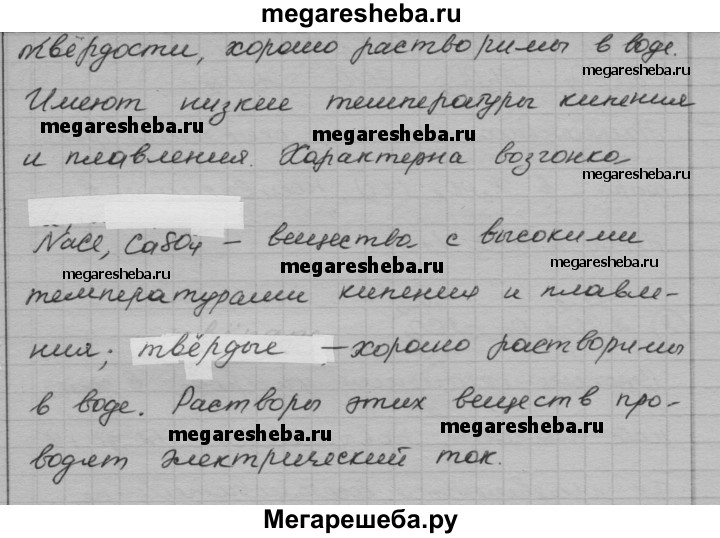 megaresheba.ru
твёрдости, хорошо растворимы в воде.
megaresheba.ru
Имеют низкие температуры кипения
megaresheba.ru
megaresheba.ru
и плавления. Характерна возгонка
megaresheba.ru
NaCl, CaSO4 – вещества с высокими
megaresheba.ru
megaresheba.ru
megaresheba.ru
температурами кипения и плавле-
ния; твёрдые – хорошо растворимы
в воде. Растворы этих веществ про-
megaresheba.ru
megaresheba.ru
водят электрический ток.
Мегарешеба.ру